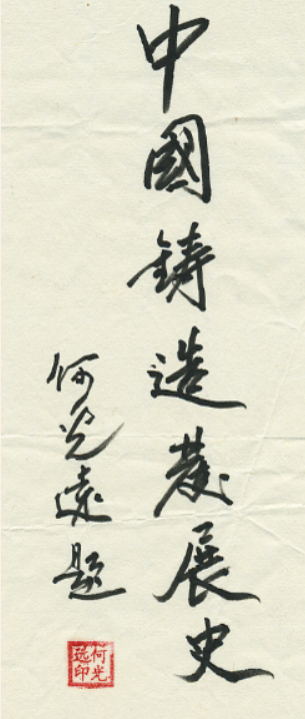 中國鋳造發展史
何光遠題
何光远印